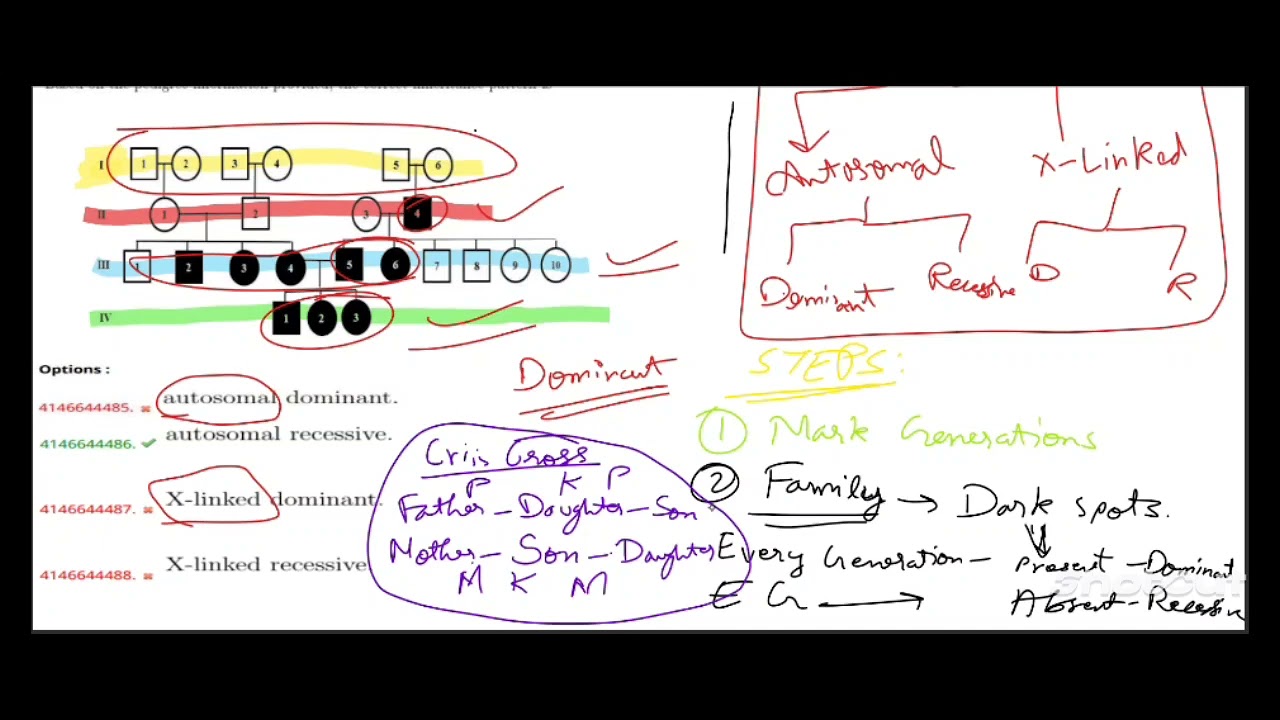 Based on the pedigree information provided, the correct inheritance pattern is
I 1 2 3 4 5 6
II 1 2 3 4
III 1 2 3 4 5 6 7 8 9 10
IV 1 2 3
Options :
4146644485. autosomal dominant.
4146644486. autosomal recessive.
4146644487. X-linked dominant.
4146644488. X-linked recessive
Dominant
Criis Cross
P K P
Father - Daughter - Son
Mother - Son - Daughter
M K M
Autosomal X-Linked
Dominant Recessive D R
STEPS:
1 Mark Generations
2 Family → Dark spots.
Every Generation - Present - Dominant
E G → Absent - Recessive